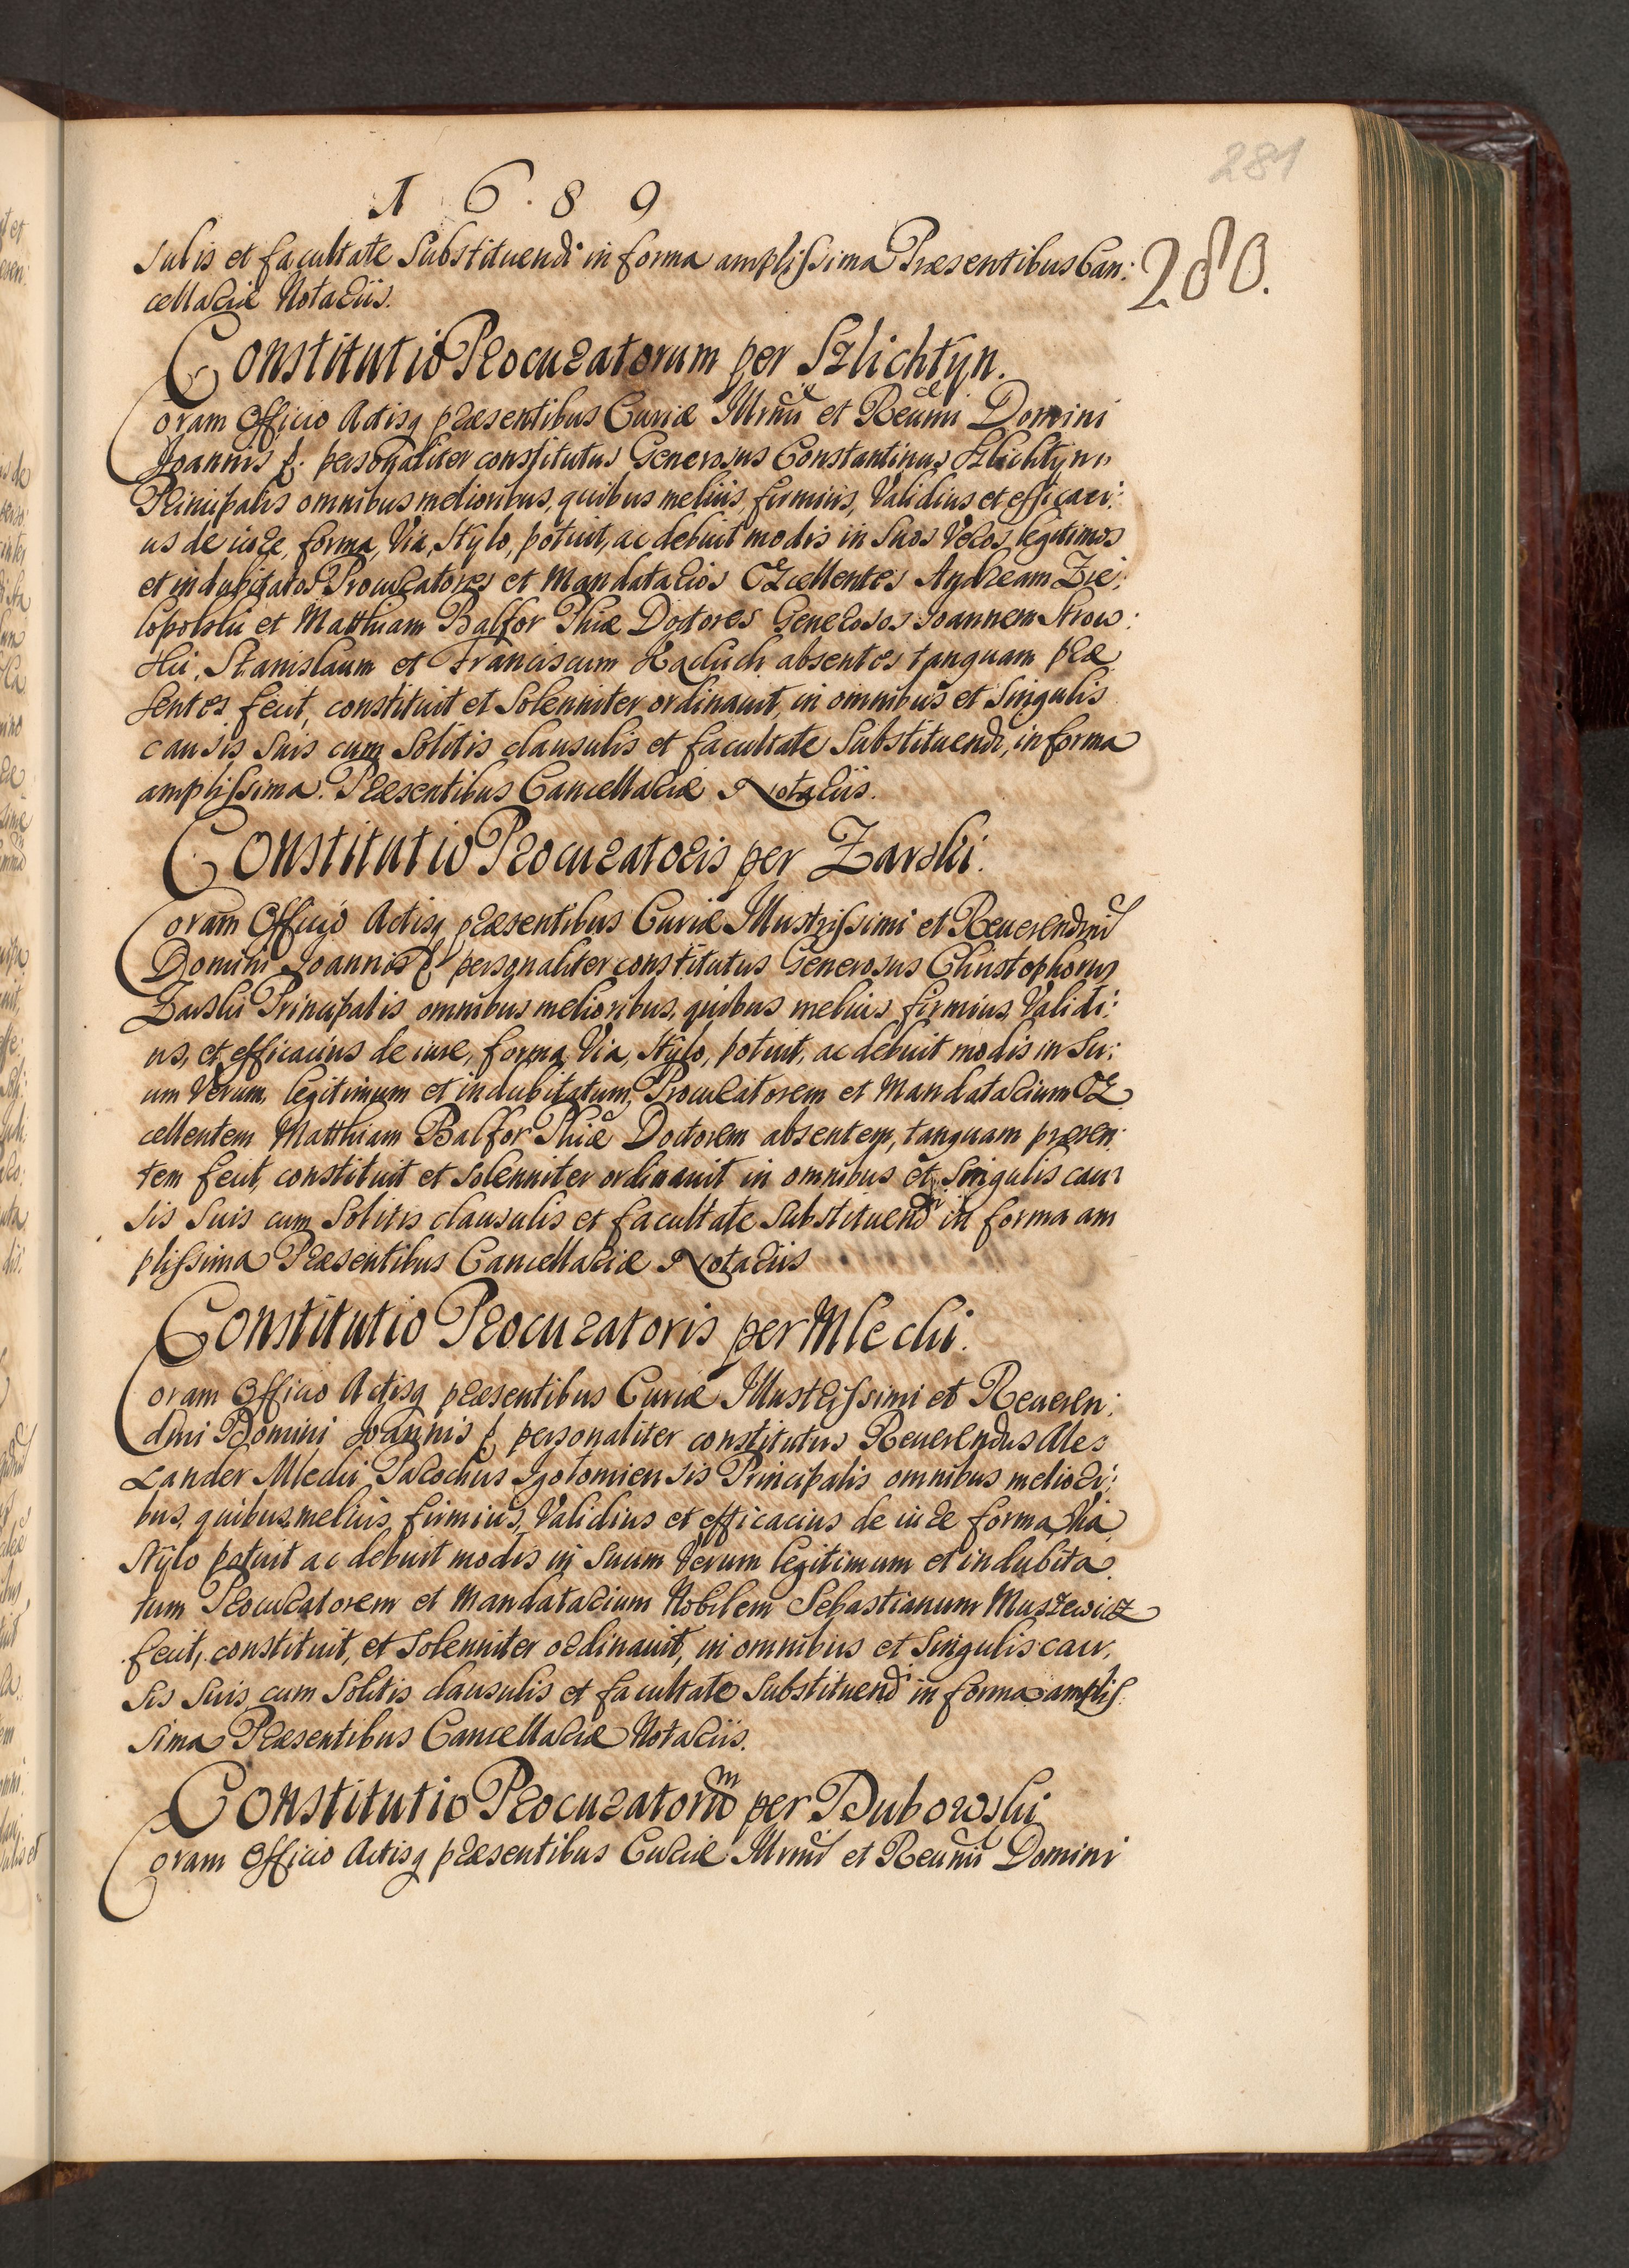 281
1 6 8 9
280.
sulis et facultate Substituendi in forma amplissima Præsentibus Can:
cellariæ Notariis.
Constitutio Procuratorum per Szlichtyn.
Coram Officio Actisq præsentibus Curiæ Illrmi et Reumi Domini
Joannis &. personaliter constitutus Generosus Constantinus Szlichtyn
Principalis omnibus melioribus, quibus melius, firmius, Validius et efficaci:
us de iure, forma, Via, Stylo, potuit, ac debuit modis in Suos Veros, legitimos
et indubitatos Procuratores et Mandatarios Excellentes Andream Zie:
lopolski et Matthiam Balfor Phiæ Doctores Generosos Joannem Strow:
ski, Stanislaum et Franciscum Raduch absentes tanquam præ
sentes fecit, constituit et Solenniter ordinauit, in omnibus et Singulis
causis Suis cum Solitis clausulis et facultate Substituendi, in forma
amplissima. Præsentibus Cancellariæ Notariis.
Constitutio Procuratoris per Zarski.
Coram Officio Actisq præsentibus Curiæ Illustrissimi et Reuerendmi
Domini Joannis & personaliter constitutus Generosus Christophorus
Zarski Principalis omnibus melioribus, quibus melius firmius, Validi:
us, et efficacius de iure, forma, Via, Stylo, potuit, ac debuit modis in Su:
um Verum, legitimum et indubitatum, Procuratorem et Mandatarium Ex
cellentem Matthiam Balfor Phiæ Doctorem absentem, tanquam præsen:
tem fecit, constituit et solenniter ordinauit in omnibus et Singulis cau:
sis Suis cum Solitis clausulis et facultate Substituendi in forma am
plissima Præsentibus Cancellariæ Notariis
Constitutio Procuratoris per Mlecki.
Coram Officio Actisq præsentibus Curiæ Illustrissimi et Reueren:
dmi Domini Joannis & personaliter constitutus Reuerendus Ale:
xander Mlecki Parochus Igotomiensis Principalis omnibus meliori:
bus, quibus melius, firmius, Validius et efficacius de iure forma, Via
Stylo potuit ac debuit modis in Suum Verum legitimum et indubita
tum Procuratorem et Mandatarium Nobilem Sebastianum Muszewicz
fecit, constituit, et Solenniter ordinauit, in omnibus et Singulis cau,
sis Suis cum Solitis clausulis et facultate Substituendi in forma amplis
sima Præsentibus Cancellariæ Notariis.
Constitutio Procuratorum per Dubowski
Coram Officio Actisq præsentibus Curiæ Illrmi et Reumi Domini